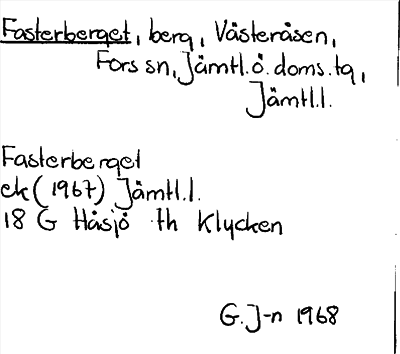 Fasterberget, berg, Västeråsen,
Fors sn, Jämtl.ö. doms. tg,
Jämtl.l.
Fasterberget
ek (1967) Jämtl.l.
18 G Håsjö th Klycken
G. J-n 1968